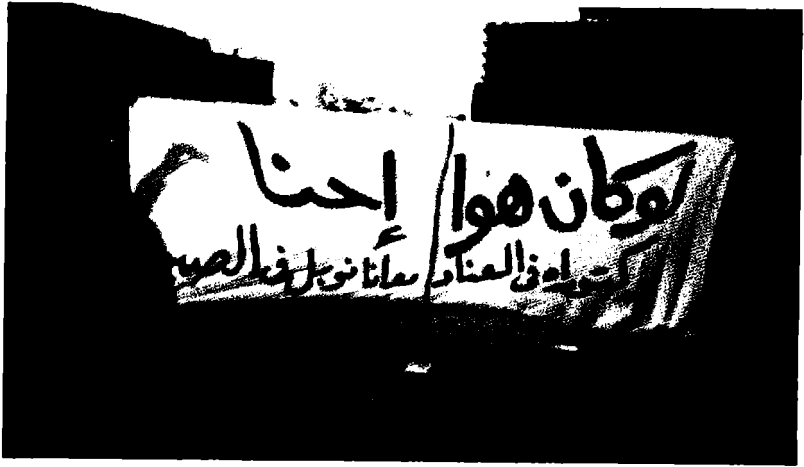 لو كان هوا إحنا
دكتوراه فى العناد معانا نوبل فى الصبر